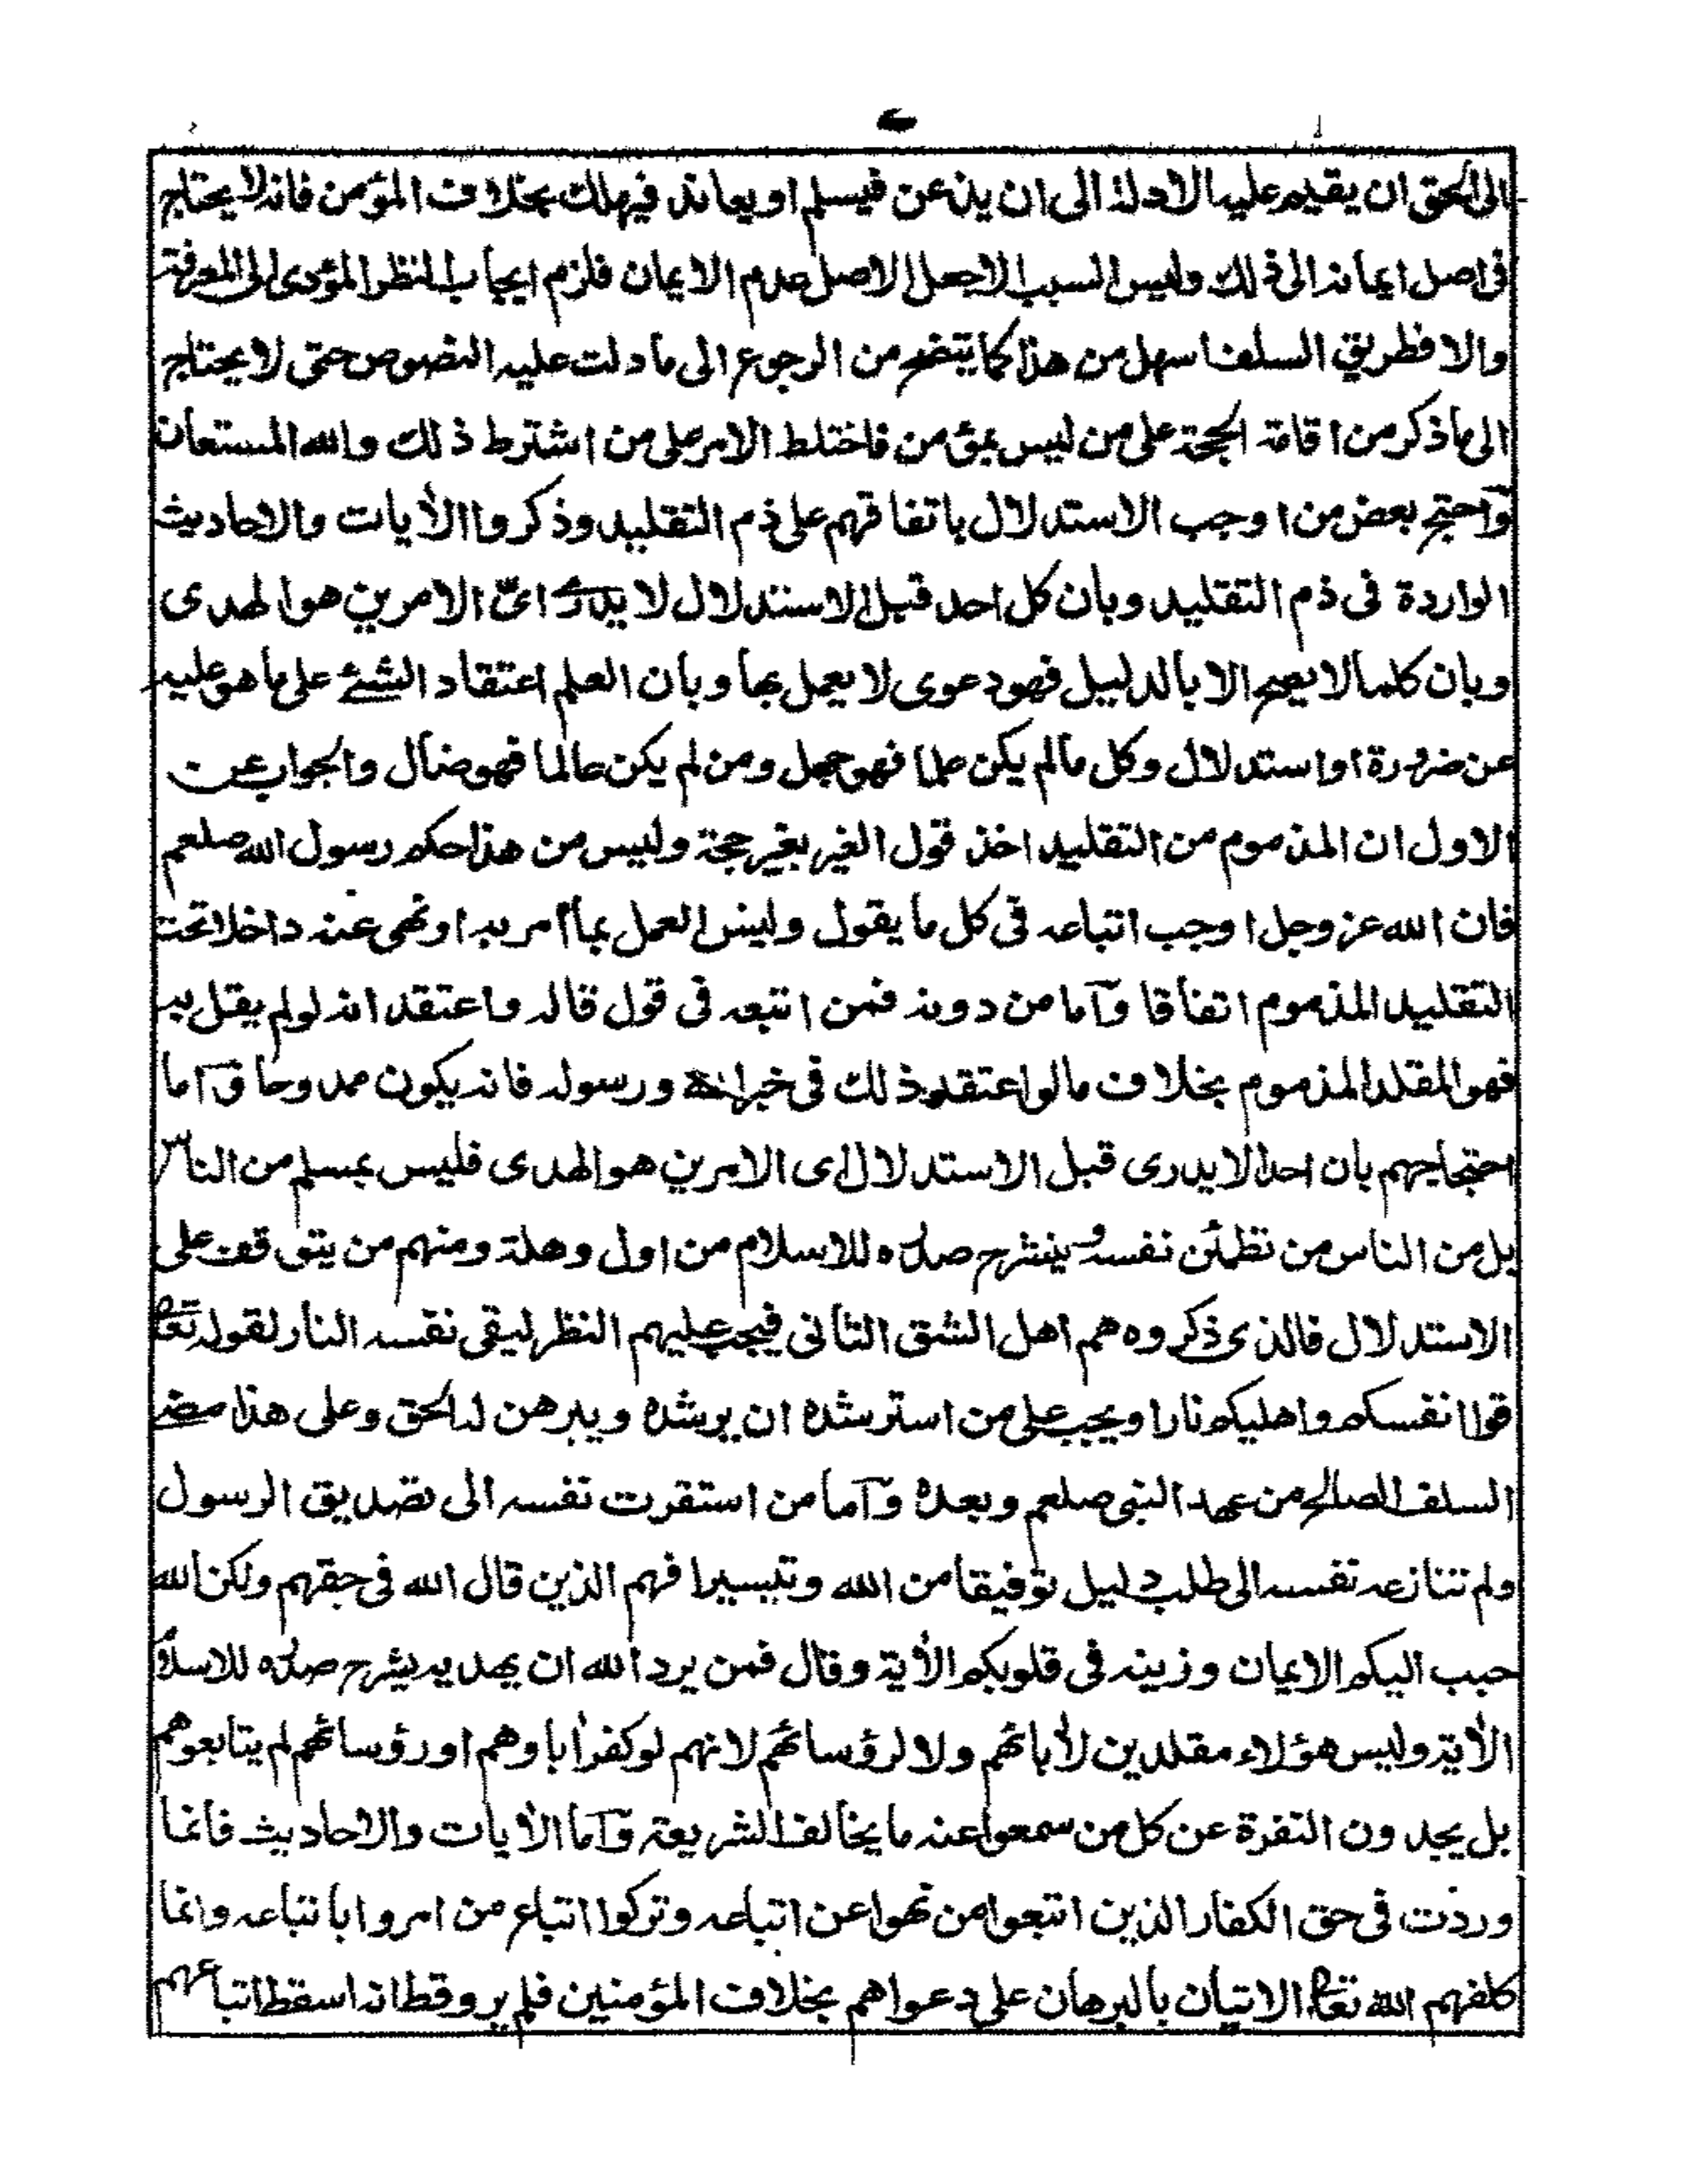 الى الحق ان يقيم عليه الادلة الى ان يذعن فيسلم او يعاند فيهلك بخلاف المؤمن فانه لا يحتاج
فى اصل ايمانه الى ذلك وليس السبب الاجعل الاصل عدم الايمان فلزم ايجاب النظر المؤدى الى المعرفة
والا فطريق السلف اسهل من هذا كما يتضح من الرجوع الى ما دلت عليه النصوص حتى لا يحتاج
الى ما ذكر من اقامة الحجة على من ليس بمؤمن فاختلط الامر على من اشترط ذلك والله المستعان
وآحتج بعض من اوجب الاستدلال باتفاقهم على ذم التقليد وذكروا الأيات والاحاديث
الواردة فى ذم التقليد وبان كل احد قبل الاستدلال لا يدرى اىّ الامرين هو الهدى
وبان كلما لا يصح الا بالدليل فهو دعوى لا يعمل بها وبان العلم اعتقاد الشئ على ما هو عليه
عن ضرورة او استدلال وكل ما لم يكن علما فهو جهل ومن لم يكن عالما فهو ضال والجواب عن
الاول ان المذموم من التقليد اخذ قول الغير بغير حجة وليس من هذا حكم رسول الله صلعم
فان الله عز وجل اوجب اتباعه فى كل ما يقول وليس العمل بما أمر به او نهى عنه داخلا تحت
التقليد المذموم اتفاقا وآما من دونه فمن اتبعه فى قول قاله واعتقد انه لو لم يقل به
فهو المقلد المذموم بخلاف ما لو اعتقد ذلك فى خبر الله ورسوله فانه يكون ممدوحا وآما
احتجاجهم بان احدا لا يدرى قبل الاستدلال اى الامرين هو الهدى فليس بمسلم من الناس
بل من الناس من تطمئن نفسه وينشرح صدره للاسلام من اول وهلة ومنهم من يتوقف على
الاستدلال فالذى ذكروه هم اهل الشق الثانى فيجب عليهم النظر ليقى نفسه النار لقوله تعا
قوا انفسكم واهليكم نارا ويجب على من استرشده ان يرشده ويبرهن له الحق وعلى هذا مضى
السلف الصالح من عهد النبى صلعم وبعده وآما من استقرت نفسه الى تصديق الرسول
ولم تنازعه نفسه الى طلب دليل توفيقا من الله وتيسيرا فهم الذين قال الله فى حقهم ولكن الله
حبب اليكم الايمان وزينه فى قلوبكم الأية وقال فمن يرد الله ان يهديه يشرح صدره للاسلام
الأية وليس هؤلاء مقلدين لأبائهم ولا لرؤسائهم لانهم لو كفر أباوهم او رؤسائهم لم يتابعوهم
بل يجدون النفرة عن كل من سمعوا عنه ما يخالف الشريعة وآما الأيات والاحاديث فانما
وردت فى حق الكفار الذين اتبعوا من نهوا عن اتباعه وتركوا اتباع من امروا باتباعه وانما
كلفهم الله تعا الاتيان بالبرهان على دعواهم بخلاف المؤمنين فلم يرو قط انه اسقط اتباعهم